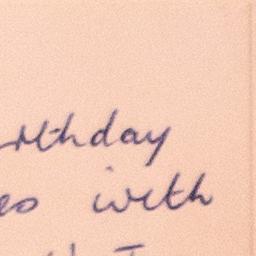 rthday
es with